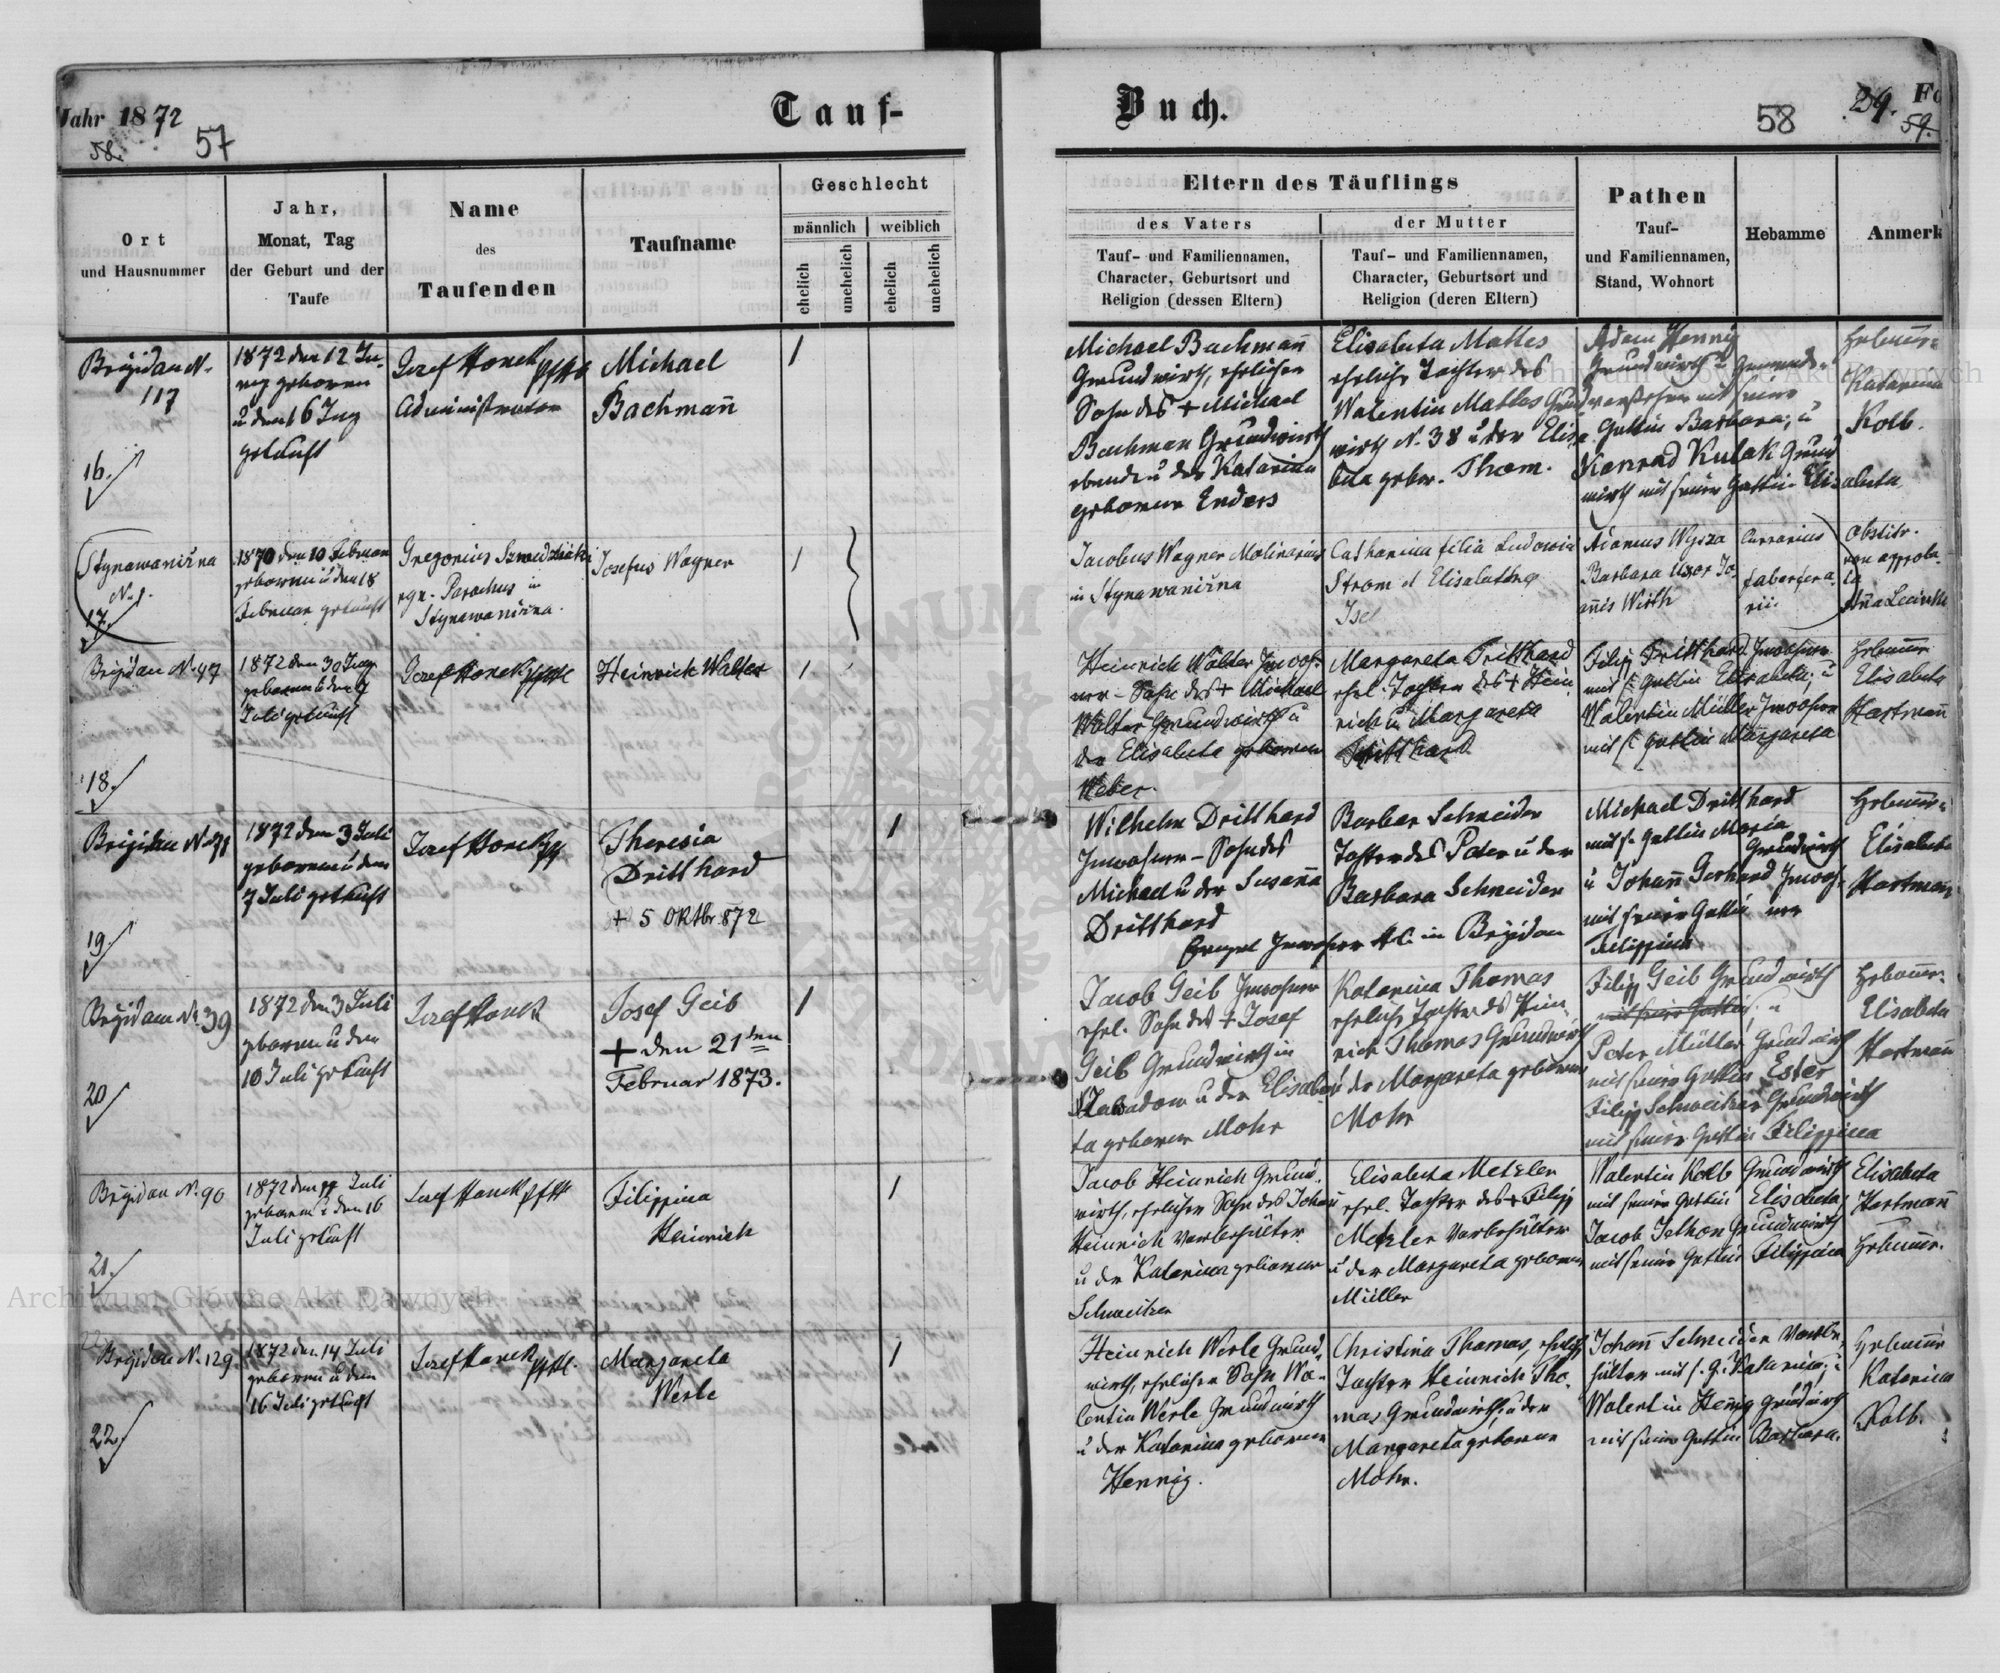 Jahr 1872
58.
57
Tauf-
Ort
und Hausnummer
Jahr,
Monat, Tag
der Geburt und der
Taufe
Name
des
Taufenden
Taufname
Geschlecht
männlich
weiblich
ehelich
unehelich
ehelich
unehelich
Brigidau N.
117
16.
1872 den 12 Ju-
ny geboren
u den 16 Juny
getauft
Josef Honek
Administrator
Michael
Bachmañ
1
Stynawanizna
N. 1.
17.
1870 den 10 Februar
geboren u den 18
Februar getauft
Gregorius
Parochus in
Stynawanizna.
Josefus Wagner
1
Brigidau N. 47
18.
1872 den 30 Juny
geboren
Juli getauft
Josef Honek
Heinrich Walter
1
Brigidau N. 71
19.
1872 den 3 Juli
geboren u den
7 Juli getauft
Josef Honek
Theresia
Dritthard
+ 5 Oktbr 872
1
Brigidau N. 39
20
1872 den 3 Juli
geboren u den
10 Juli getauft
Josef Honek
Josef Geib
+ den 21ten
Februar 1873.
1
Brigidau N. 90
21.
1872 den Juli
geboren u den 16
Juli getauft
Josef Honek
Filippina
Heinrich
1
Brigidau N. 129
22
1872 den 14 Juli
geboren u den
16 Juli getauft
Josef Honek
Margareta
Werle
1
Buch.
58
29.
59.
Fo
Eltern des Täuflings
des Vaters
der Mutter
Tauf- und Familiennamen,
Character, Geburtsort und
Religion (dessen Eltern)
Tauf- und Familiennamen,
Character, Geburtsort und
Religion (deren Eltern)
Pathen
Tauf-
und Familiennamen,
Stand, Wohnort
Hebamme
Anmerk
Michael Bachmañ
Grundwirth, ehelicher
Sohn des + Michael
Bachman Grundwirth
u der Katarina
geborene Enders
Elisabeta Mattes
eheliche Tochter des
Walentin Mattes Grund
wirth N. 38 u der Elisa
beta gebor. Thom.
Adam Hennig
Grundwirth u Gemeinde-
vorsteher mit seiner
Gattin Barbara; u
Konrad Kulak Grund
wirth mit seiner Gattin Elisabeta
Hebamme
Katarina
Kolb.
Jacobus Wagner Molinarius
in Stynawanizna
Catharina filia Ludowici
Strom et Elisabethae
Isel
Adamus Wysza
Barbara Uxor Jo-
annis Wirth
fabri ferra-
rii
Obstetr.
non approba-
ta
Heinrich Walter Inwoh-
ner - Sohn des + Michael
Walter Grundwirth u
der Elisabeta geborene
Weber.
Margareta Dritthard
ehel. Tochter des + Hein
rich u Margareta
Dritthard
Filip Dritthard Inwohner
mit s. Gattin Elisabeta; u
Walentin Müller Inwohner
mit s. Gattin Margareta
Hebamme
Elisabeta
Hartmañ
Wilhelm Dritthard
Inwohner - Sohn des
Michael u der Susana
Dritthard
Inwohner H.C. in Brigidau
Barbar Schneider
Tochter des Peter u der
Barbara Schneider
Michael Dritthard
mit s. Gattin Maria
Grundwirth
u Johañ Gerhard Inwoh-
mit seiner Gattin ner
Filippina
Hebamme
Elisabeta
Hartmañ
Jacob Geib Inwohner
ehel. Sohn des + Josef
Geib Grundwirth in
u der Elisabe
ta geborene Mohr
Katarina Thomas
eheliche Tochter des Hein
rich Thomas Grundwirth
u der Margareta geborene
Mohr
Filip Geib Grundwirth
mit seiner Gattin; u
Peter Müller Grundwirth
mit seiner Gattin Ester
Filip Schweitzer Grundwirth
mit seiner Gattin Filippina
Hebamme:
Elisabeta
Hartmañ
Jacob Heinrich Grund-
wirth, ehelicher Sohn des Johañ
Heinrich Vorbehälter
u der Katarina geborene
Schweitzer
Elisabeta Metzler
ehel. Tochter des + Filip
Metzler Vorbehälter
u der Margareta geborene
Müller
Walentin Kolb Grundwirth
mit seiner Gattin Elisabeta
Jacob Jethon Grundwirth
mit seiner Gattin Filippina
Elisabeta
Hartmañ
Hebamme.
Heinrich Werle Grund-
wirth, ehelicher Sohn Wa-
lentin Werle Grundwirth
u der Katarina geborene
Hennig.
Christina Thomas, eheliche
Tochter Heinrich Tho-
mas Grundwirth, u der
Margareta geborene
Mohr.
Johañ Schneider Vorbe-
hälter mit s. G. Katarina; u
Walentin Heñig Grundwirth
mit seiner Gattin Barbara.
Hebamme
Katarina
Kolb.
Archiwum Główne Akt Dawnych
Archiwum Główne Akt Dawnych